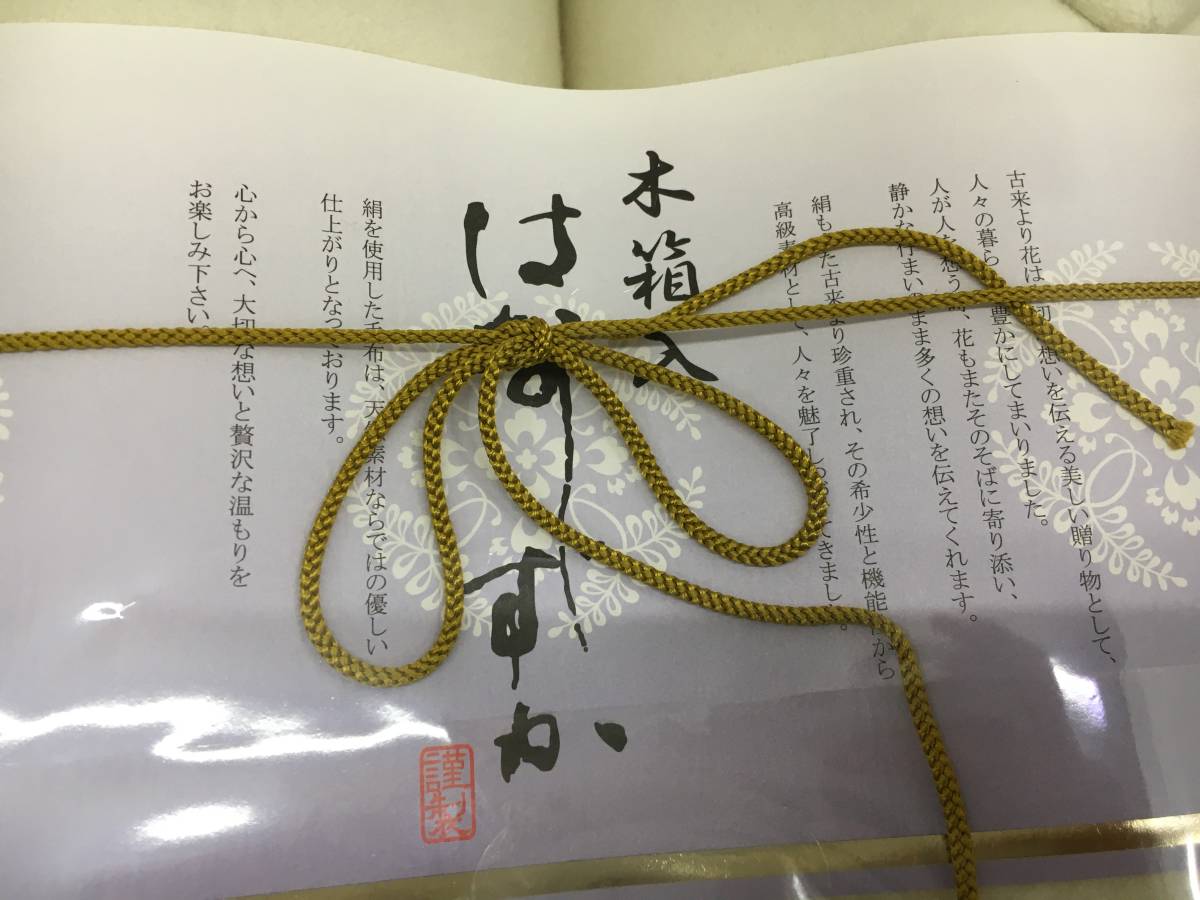 古来より花は 切 想いを伝える美しい贈り物として、
人々の暮ら 豊かにしてまいりました。
人が人 想う 、花もまたそのそばに寄り添い、
静かな佇まいのまま多くの想いを伝えてくれます。
絹もまた古来より珍重され、その希少性と機能性から
高級素材として、人々を魅了しつ てきまし 。
木箱入
はなしずか
謹製
絹を使用した毛布は、天然素材ならではの優しい
仕上がりとなっております。
心から心へ、大切な想いと贅沢な温もりを
お楽しみ下さい。